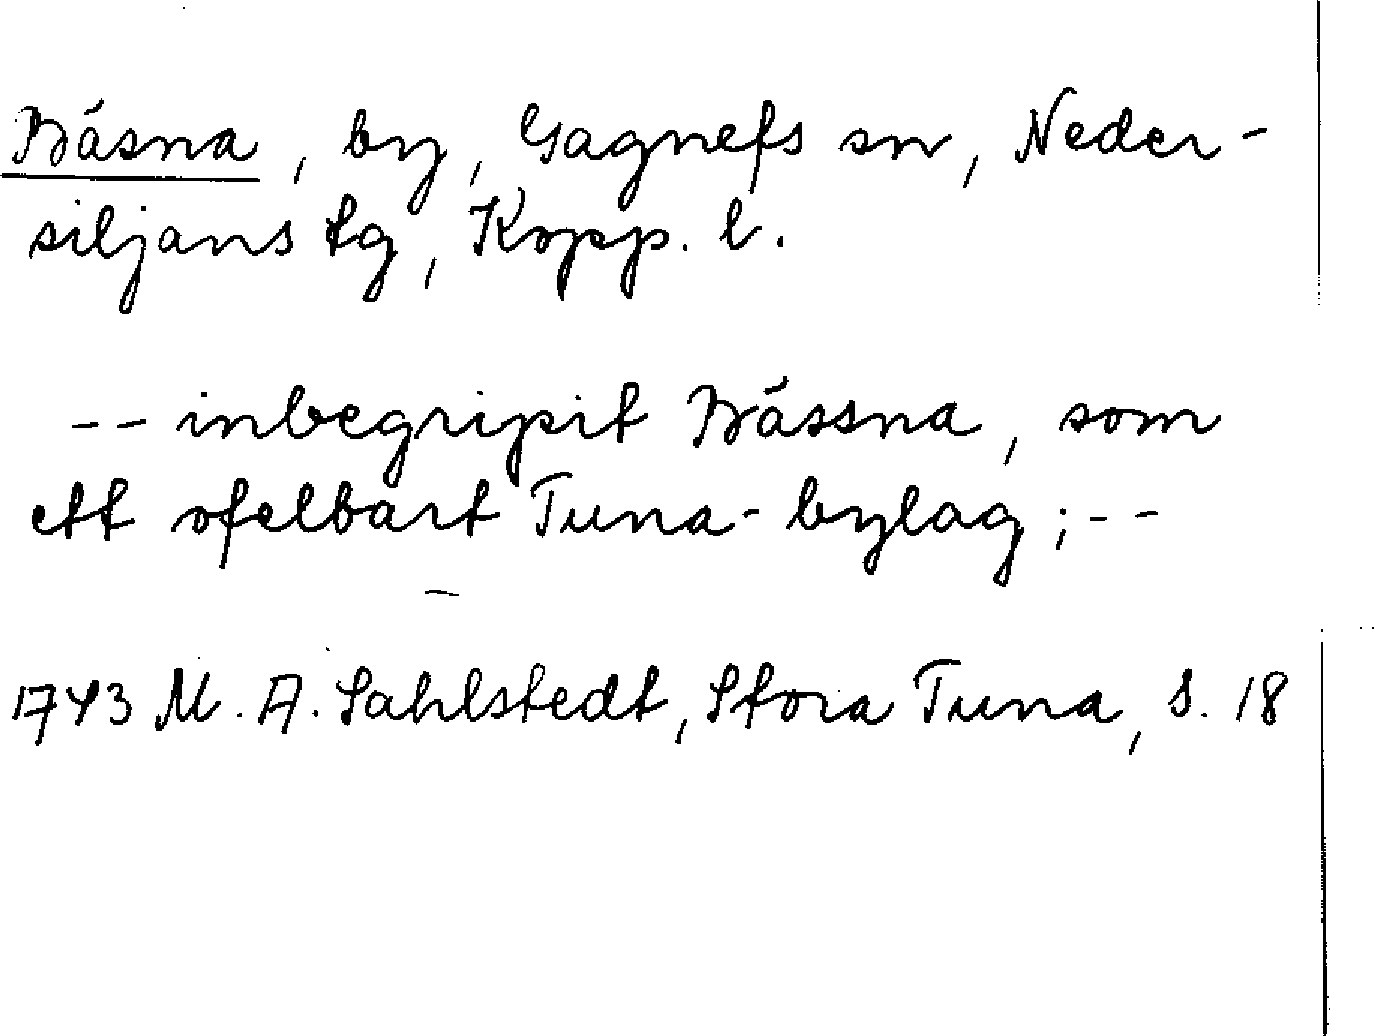 Båsna, by, Gagnefs sn, Neder-
siljans tg, Kopp. l.
-- inbegripit Båssna, som
ett ofelbart Tuna-bylag; --
1743 M. A. Sahlstedt, Stora Tuna, S. 18